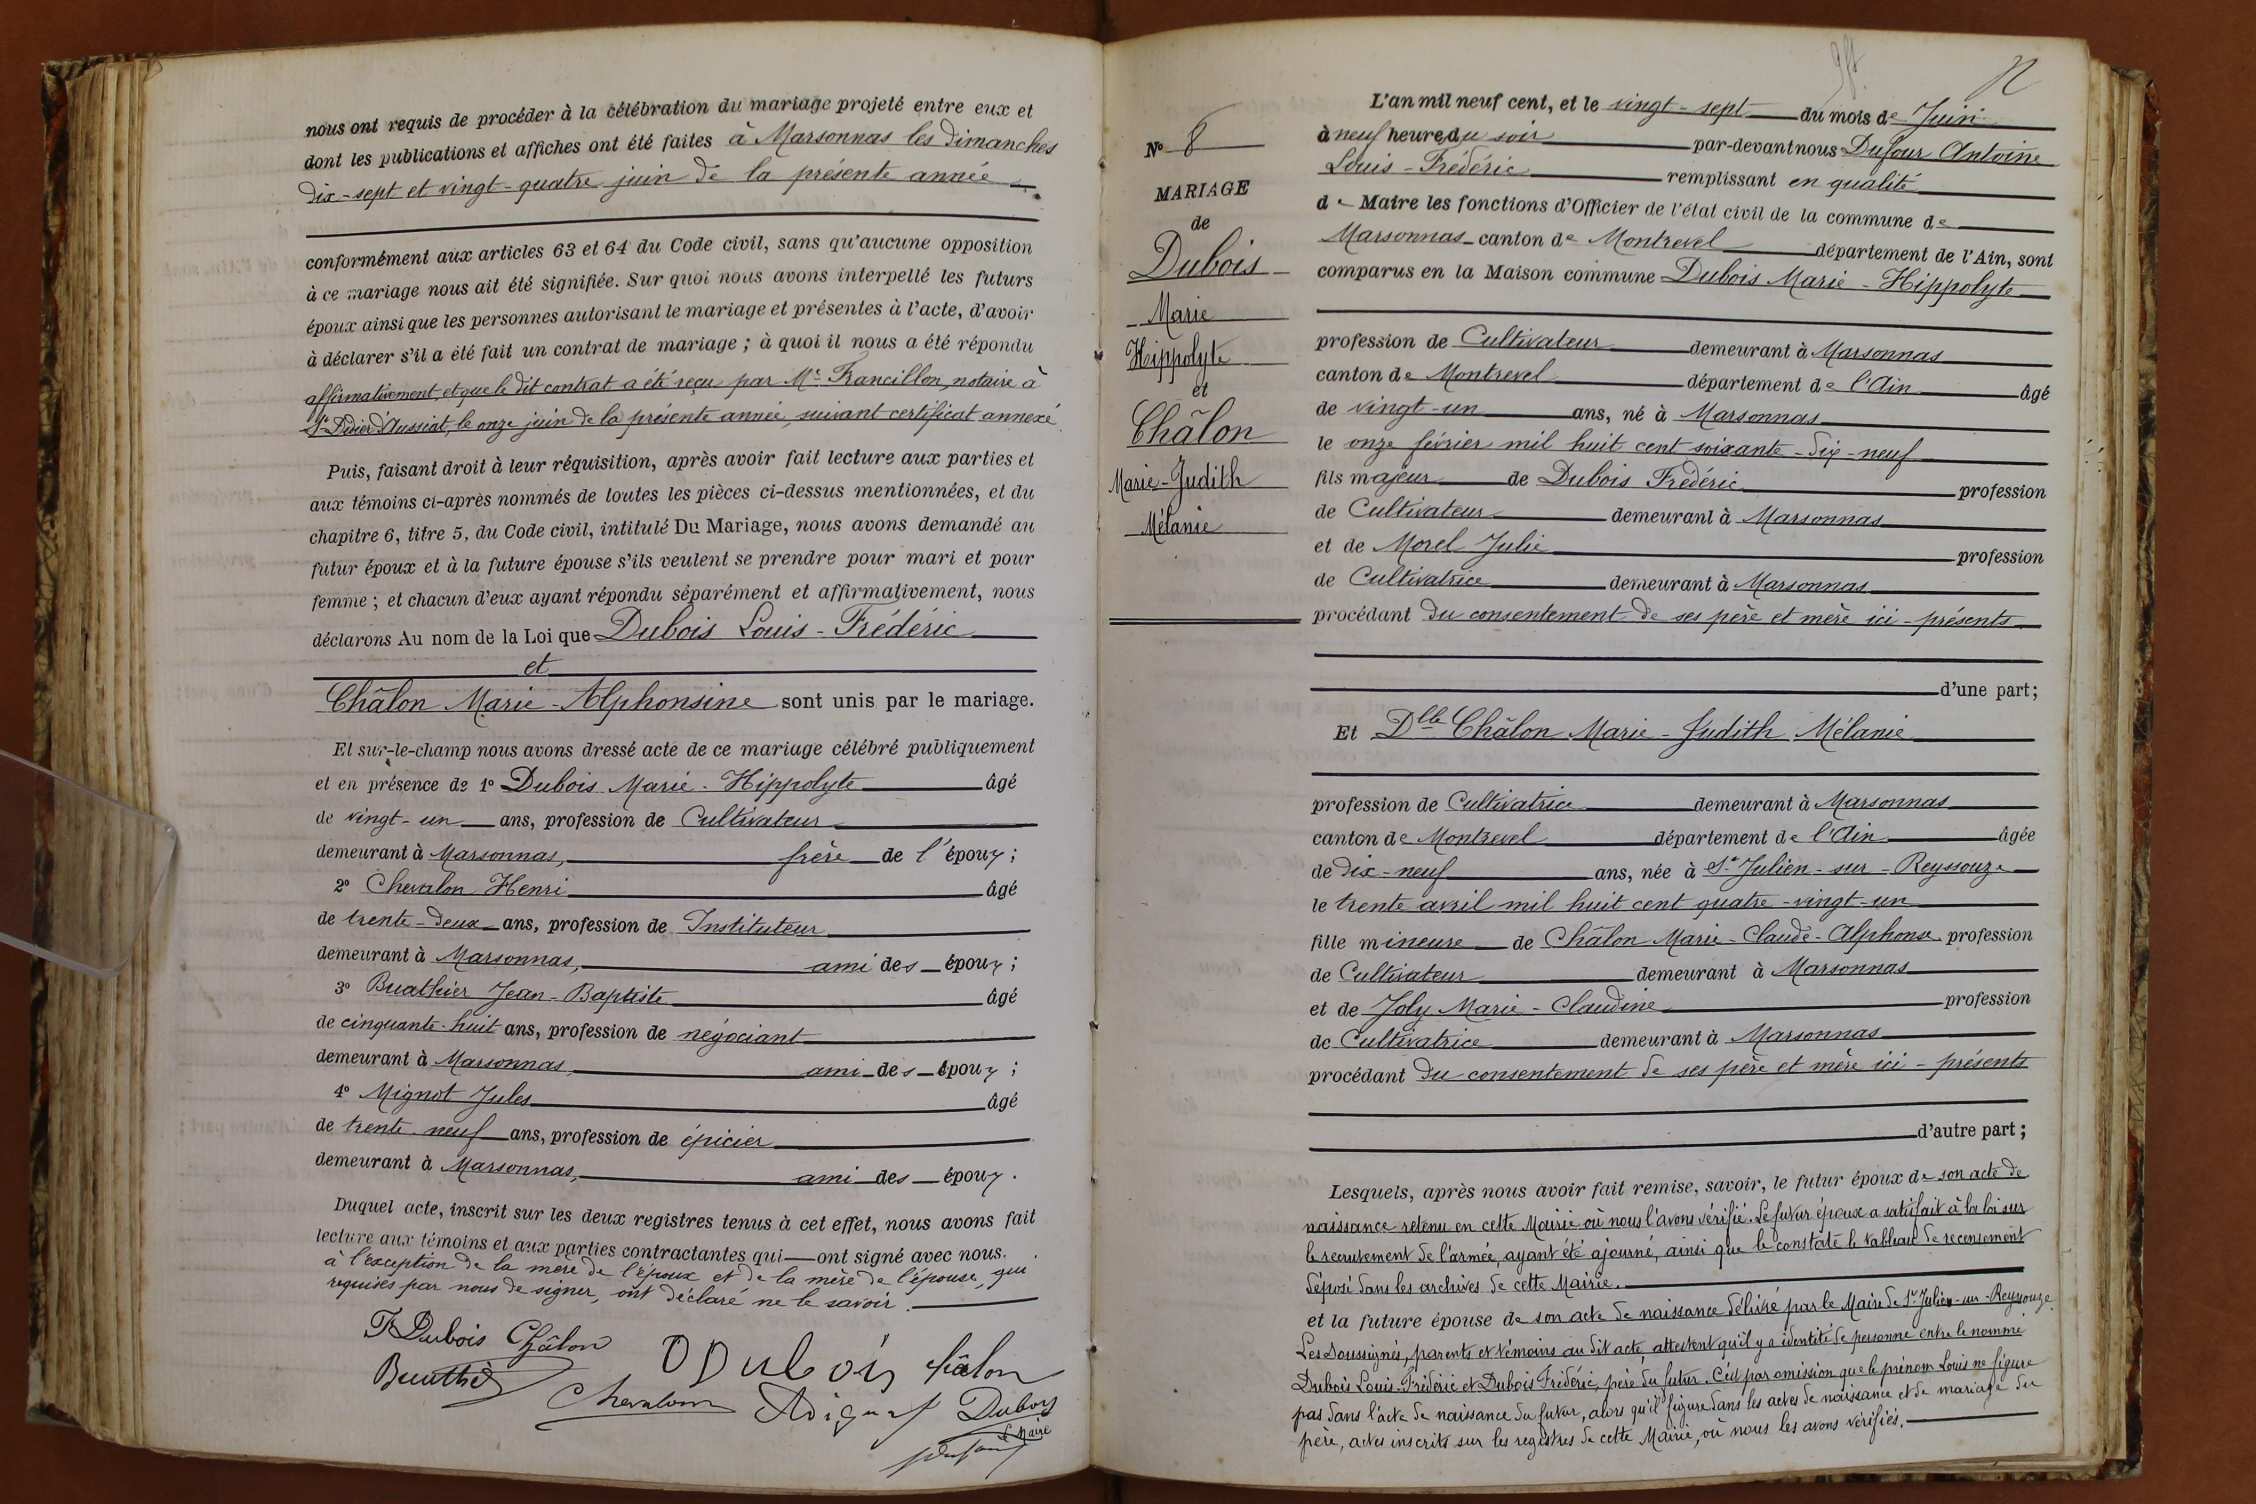 nous ont requis de procéder à la célébration du mariage projeté entre eux et
dont les publications et affiches ont été faites à Marsonnas les dimanches
dix-sept et vingt-quatre juin de la présente année
conformément aux articles 63 et 64 du Code civil, sans qu'aucune opposition
à ce mariage nous ait été signifiée. Sur quoi nous avons interpellé les futurs
époux ainsi que les personnes autorisant le mariage et présentes à l'acte, d'avoir
à déclarer s'il a été fait un contrat de mariage ; à quoi il nous a été répondu
affirmativement, et que le dit contrat a été reçu par Me Francillon, notaire à
St Didier d'Aussiat, le onze juin de la présente année, suivant certificat annexé.
Puis, faisant droit à leur réquisition, après avoir fait lecture aux parties et
aux témoins ci-après nommés de toutes les pièces ci-dessus mentionnées, et du
chapitre 6, titre 5, du Code civil, intitulé Du Mariage, nous avons demandé au
futur époux et à la future épouse s'ils veulent se prendre pour mari et pour
femme ; et chacun d'eux ayant répondu séparément et affirmativement, nous
déclarons Au nom de la Loi que Dubois Louis-Frédéric
et
Châlon Marie-Alphonsine sont unis par le mariage.
Et sur-le-champ nous avons dressé acte de ce mariage célébré publiquement
et en présence de 1° Dubois Marie-Hippolyte âgé
de vingt-un ans, profession de Cultivateur
demeurant à Marsonnas, frère de l'époux ;
2° Chevalon Henri âgé
de trente-deux ans, profession de Instituteur
demeurant à Marsonnas, ami des époux ;
3° Buathier Jean-Baptiste âgé
de cinquante-huit ans, profession de négociant
demeurant à Marsonnas, ami des époux ;
4° Mignot Jules âgé
de trente-neuf ans, profession de épicier
demeurant à Marsonnas, ami des époux.
Duquel acte, inscrit sur les deux registres tenus à cet effet, nous avons fait
lecture aux témoins et aux parties contractantes qui ont signé avec nous.
à l'exception de la mère de l'époux et de la mère de l'épouse, qui
requises par nous de signer, ont déclaré ne le savoir.
F Dubois Châlon Dubois Châlon
Buathier Chevalon Mignot Dubois
Le Maire
Dufour
12
N° 8
MARIAGE
de
Dubois
Marie
Hippolyte
et
Châlon
Marie-Judith
Mélanie
L'an mil neuf cent, et le vingt-sept du mois de Juin
à neuf heures du soir par-devant nous Dufour Antoine
Louis-Frédéric remplissant en qualité
de Maire les fonctions d'Officier de l'état civil de la commune de
Marsonnas canton de Montrevel département de l'Ain, sont
comparus en la Maison commune Dubois Marie-Hippolyte
profession de Cultivateur demeurant à Marsonnas
canton de Montrevel département de l'Ain âgé
de vingt-un ans, né à Marsonnas
le onze février mil huit cent soixante-dix-neuf
fils majeur de Dubois Frédéric profession
de Cultivateur demeurant à Marsonnas
et de Morel Julie profession
de Cultivatrice demeurant à Marsonnas
procédant du consentement de ses père et mère ici-présents
d'une part;
Et Dlle Châlon Marie-Judith Mélanie
profession de Cultivatrice demeurant à Marsonnas
canton de Montrevel département de l'Ain âgée
de dix-neuf ans, née à St Julien-sur-Reyssouze
le trente avril mil huit cent quatre-vingt-un
fille mineure de Châlon Marie-Claude-Alphonse profession
de Cultivateur demeurant à Marsonnas
et de Joly Marie-Claudine profession
de Cultivatrice demeurant à Marsonnas
procédant du consentement de ses père et mère ici-présents
d'autre part ;
Lesquels, après nous avoir fait remise, savoir, le futur époux de son acte de
naissance retenu en cette Mairie où nous l'avons vérifié. Le futur époux a satisfait à la loi sur
le recrutement de l'armée, ayant été ajourné, ainsi que le constate le tableau de recensement
déposé dans les archives de cette Mairie.
et la future épouse de son acte de naissance délivré par le Maire de St Julien-sur-Reyssouze.
Les soussignés, parents et témoins au dit acte attestent qu'il y a identité de personne entre le nommé
Dubois Louis-Frédéric et Dubois Frédéric, père du futur. C'est par omission que le prénom Louis ne figure
pas dans l'acte de naissance du futur, alors qu'il figure dans les actes de naissance et de mariage du
père, actes inscrits sur les registres de cette Mairie, où nous les avons vérifiés.